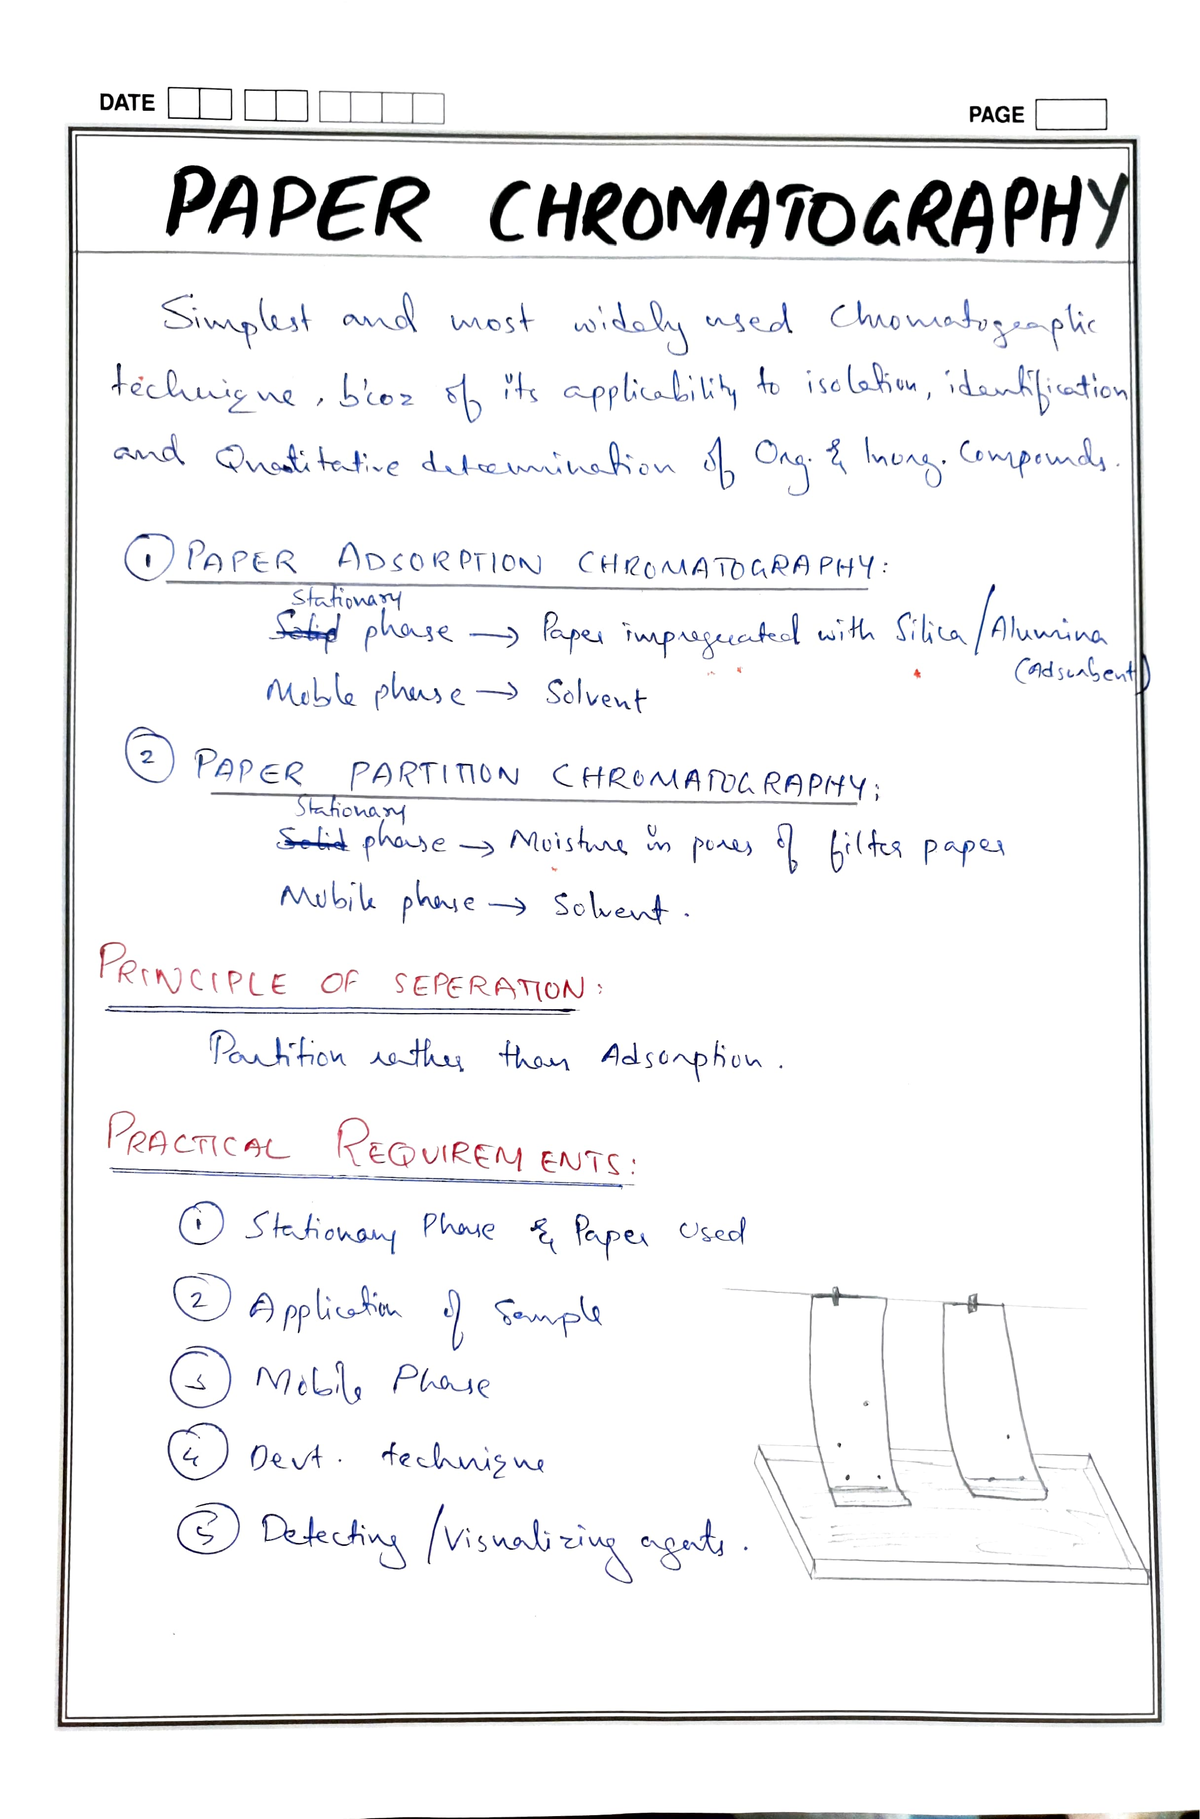 DATE
PAGE
PAPER CHROMATOGRAPHY
Simplest and most widely used Chromatographic
technique, b'coz of its applicability to isolation, identification
and Quatitative determination of Org. & Inorg. Compounds.
① PAPER ADSORPTION CHROMATOGRAPHY:
Stationary
Solid phase → Paper impregnated with Silica/Alumina
(Adsorbent)
Mobile phase → Solvent
② PAPER PARTITION CHROMATOGRAPHY:
Stationary
Solid phase → Moisture in pores of filter paper
Mobile phase → Solvent.
PRINCIPLE OF SEPERATION:
Partition rather than Adsorption.
PRACTICAL REQUIREMENTS:
① Stationary Phase & Paper Used
② Application of Sample
③ Mobile Phase
④ Devt. technique
⑤ Detecting/Visualizing agents.